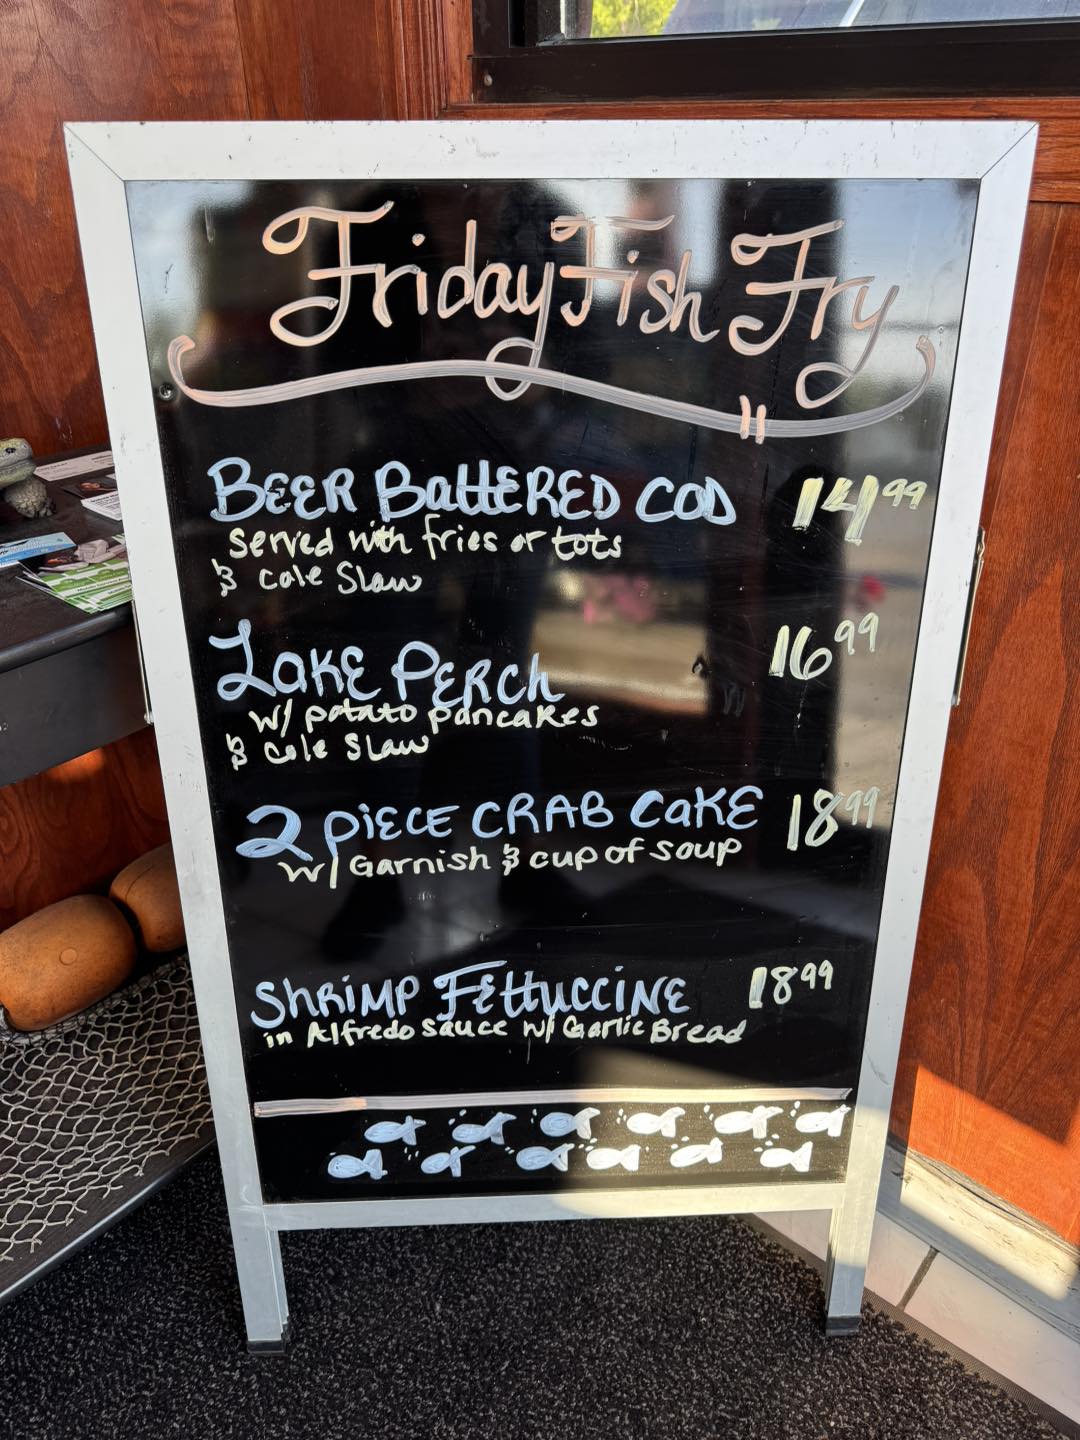 Friday Fish Fry
BEER BattERED COD 14.99
Served with fries or tots
& Cole Slaw
LAKE PERCh 16.99
w/ potato pancakes
& Cole Slaw
2 PiECE CRAB CaKE 18.99
w/ Garnish & cup of soup
ShRiMP FEttuCCiNE 18.99
in Alfredo sauce w/ Garlic Bread